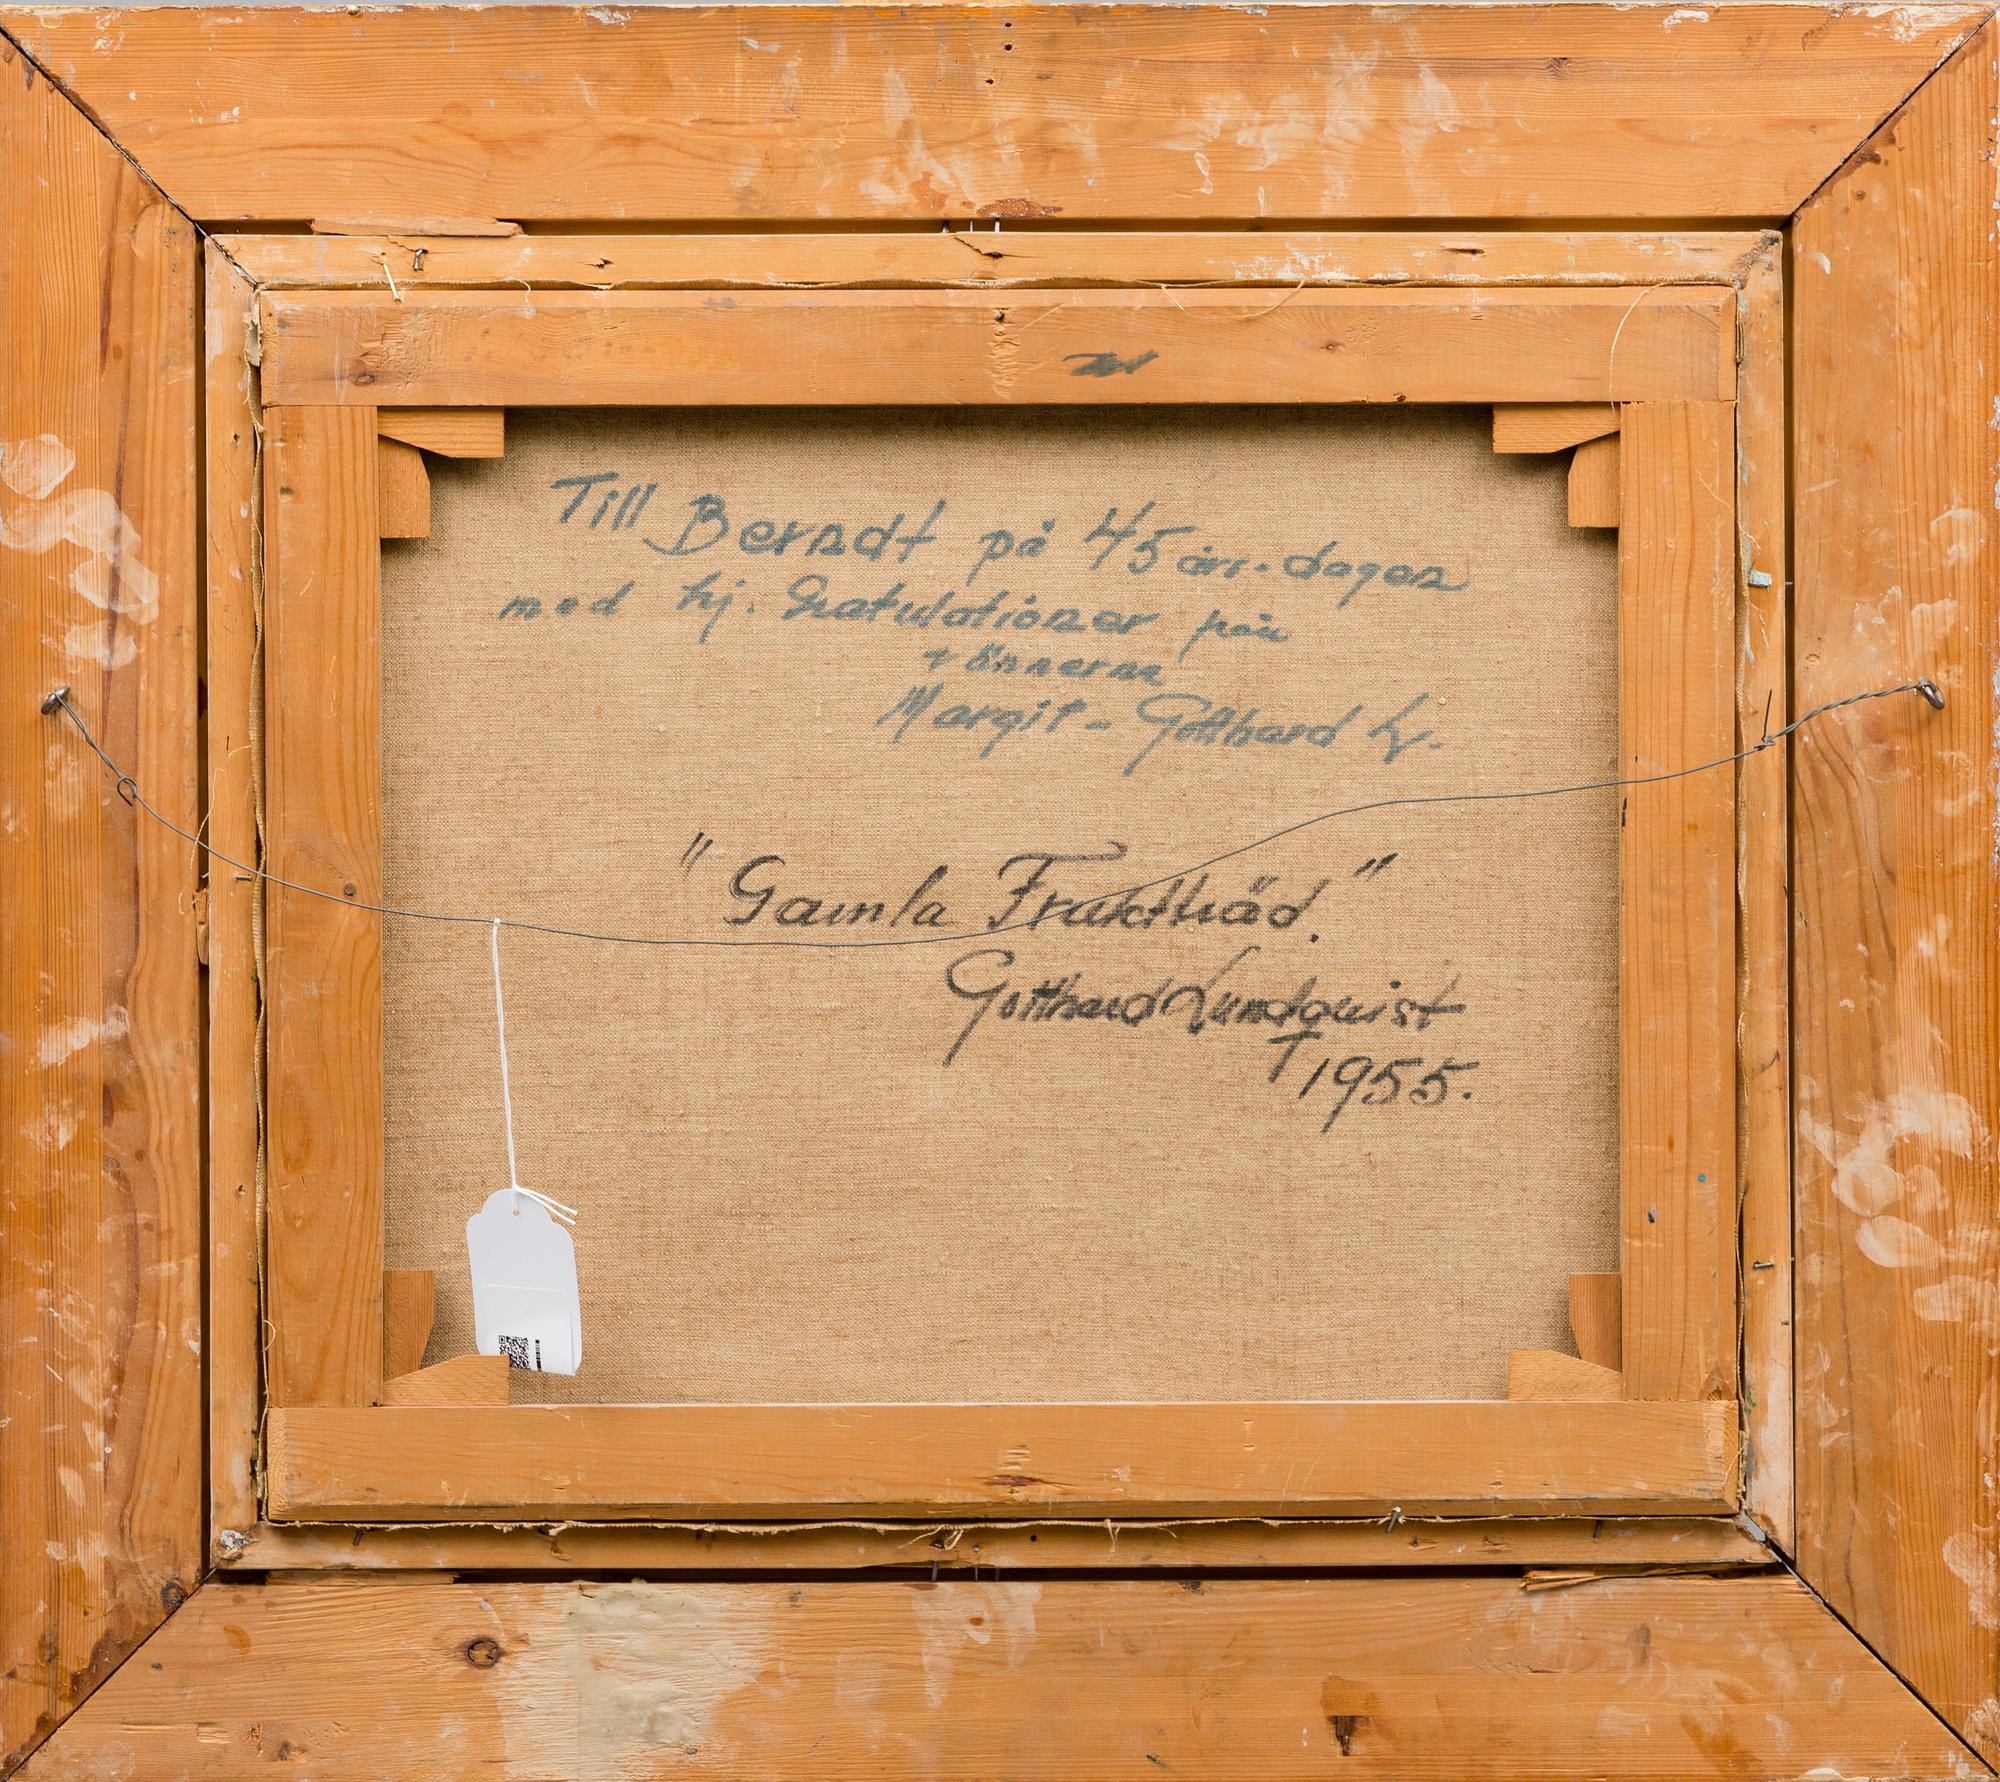 Till Berndt på 45 års-dagen
med hj. Gratulationer från
vännerna
Margit - Gotthard L.
"Gamla Fruktträd."
Gotthard Lundquist
1955.